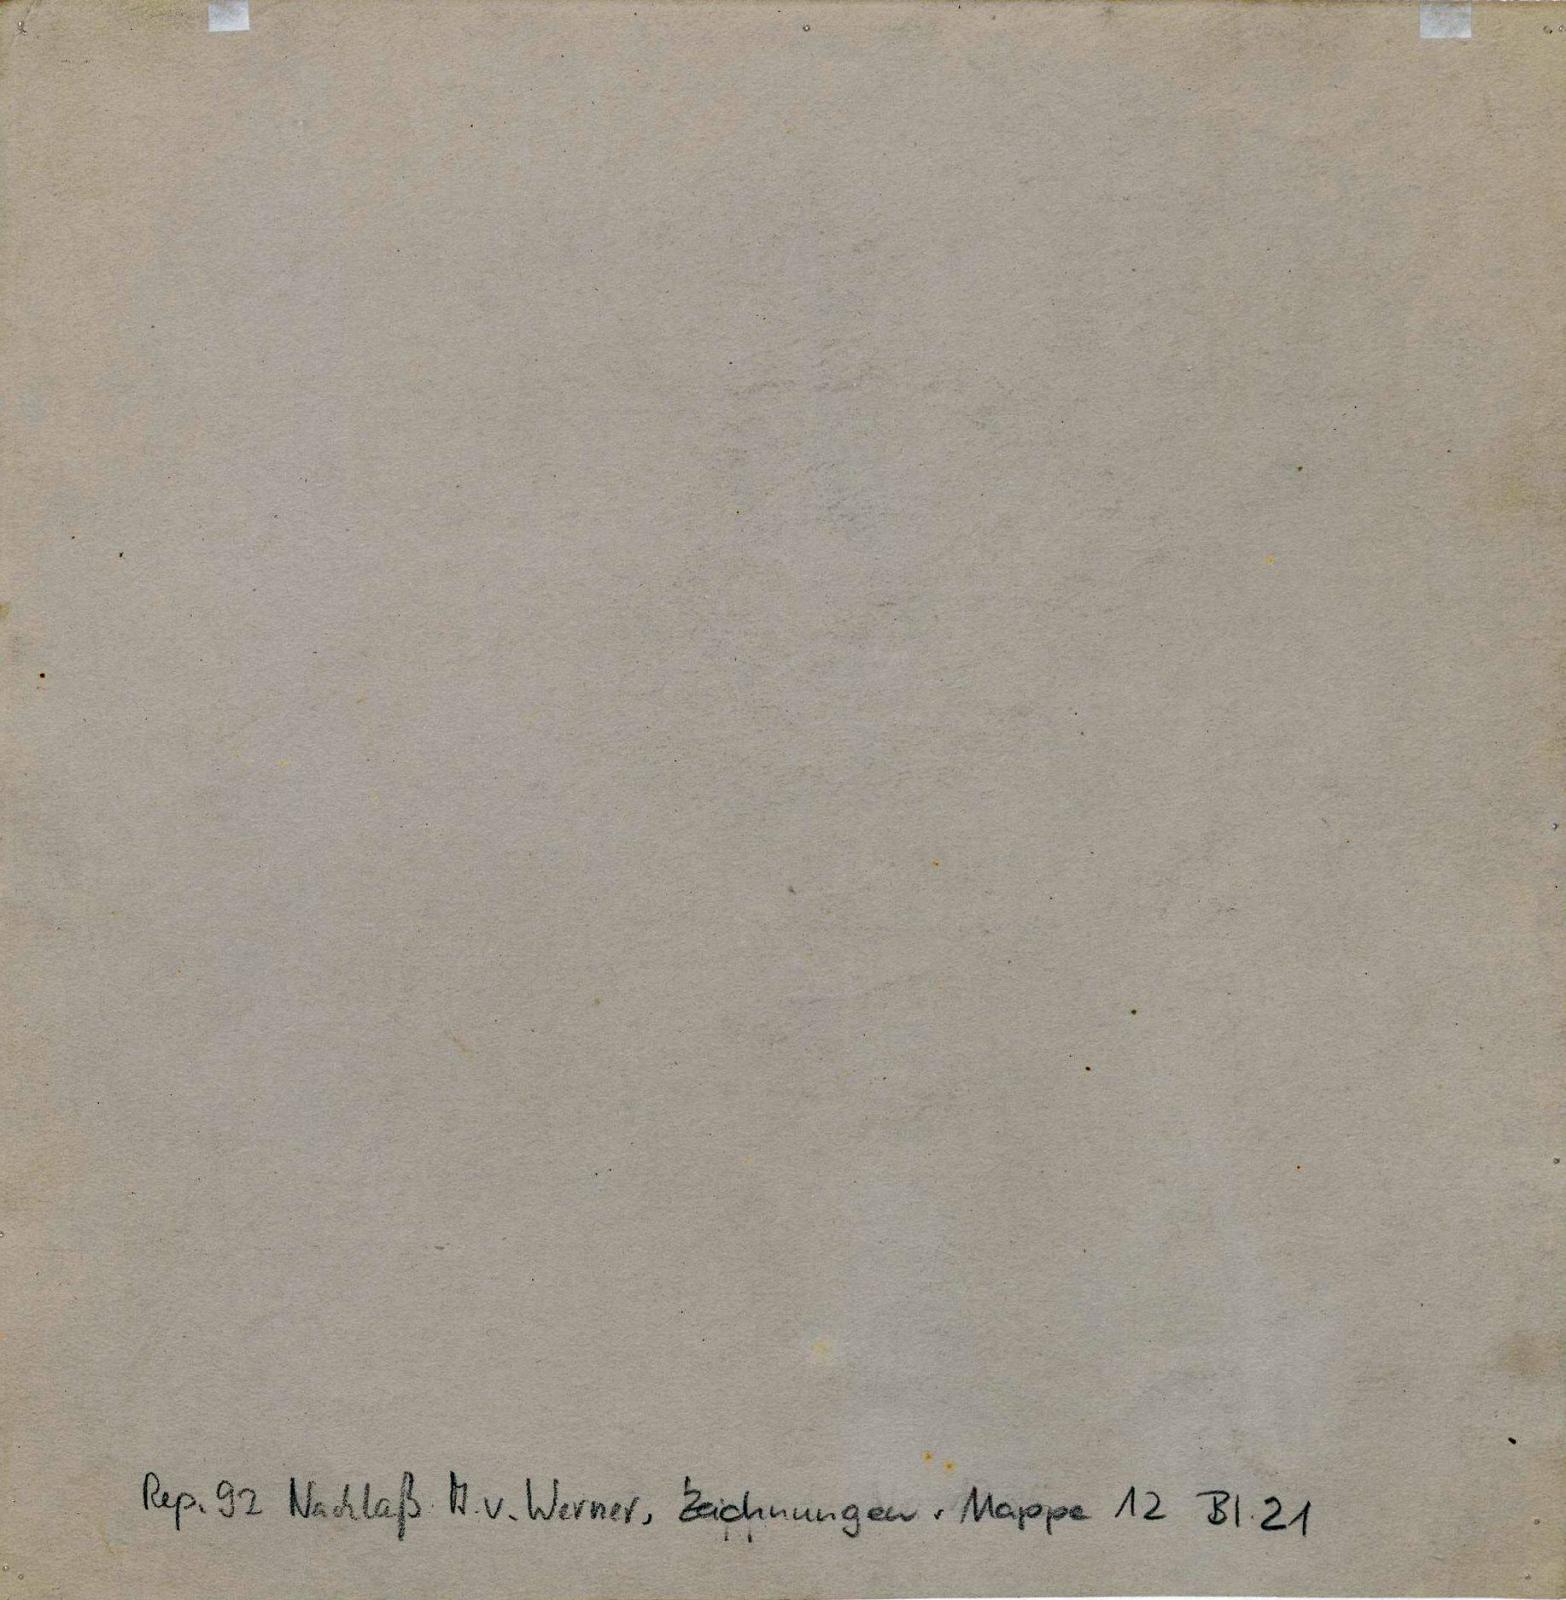 Rep. 92 Nachlaß A. v. Werner, Zeichnungen. Mappe 12 Bl. 21